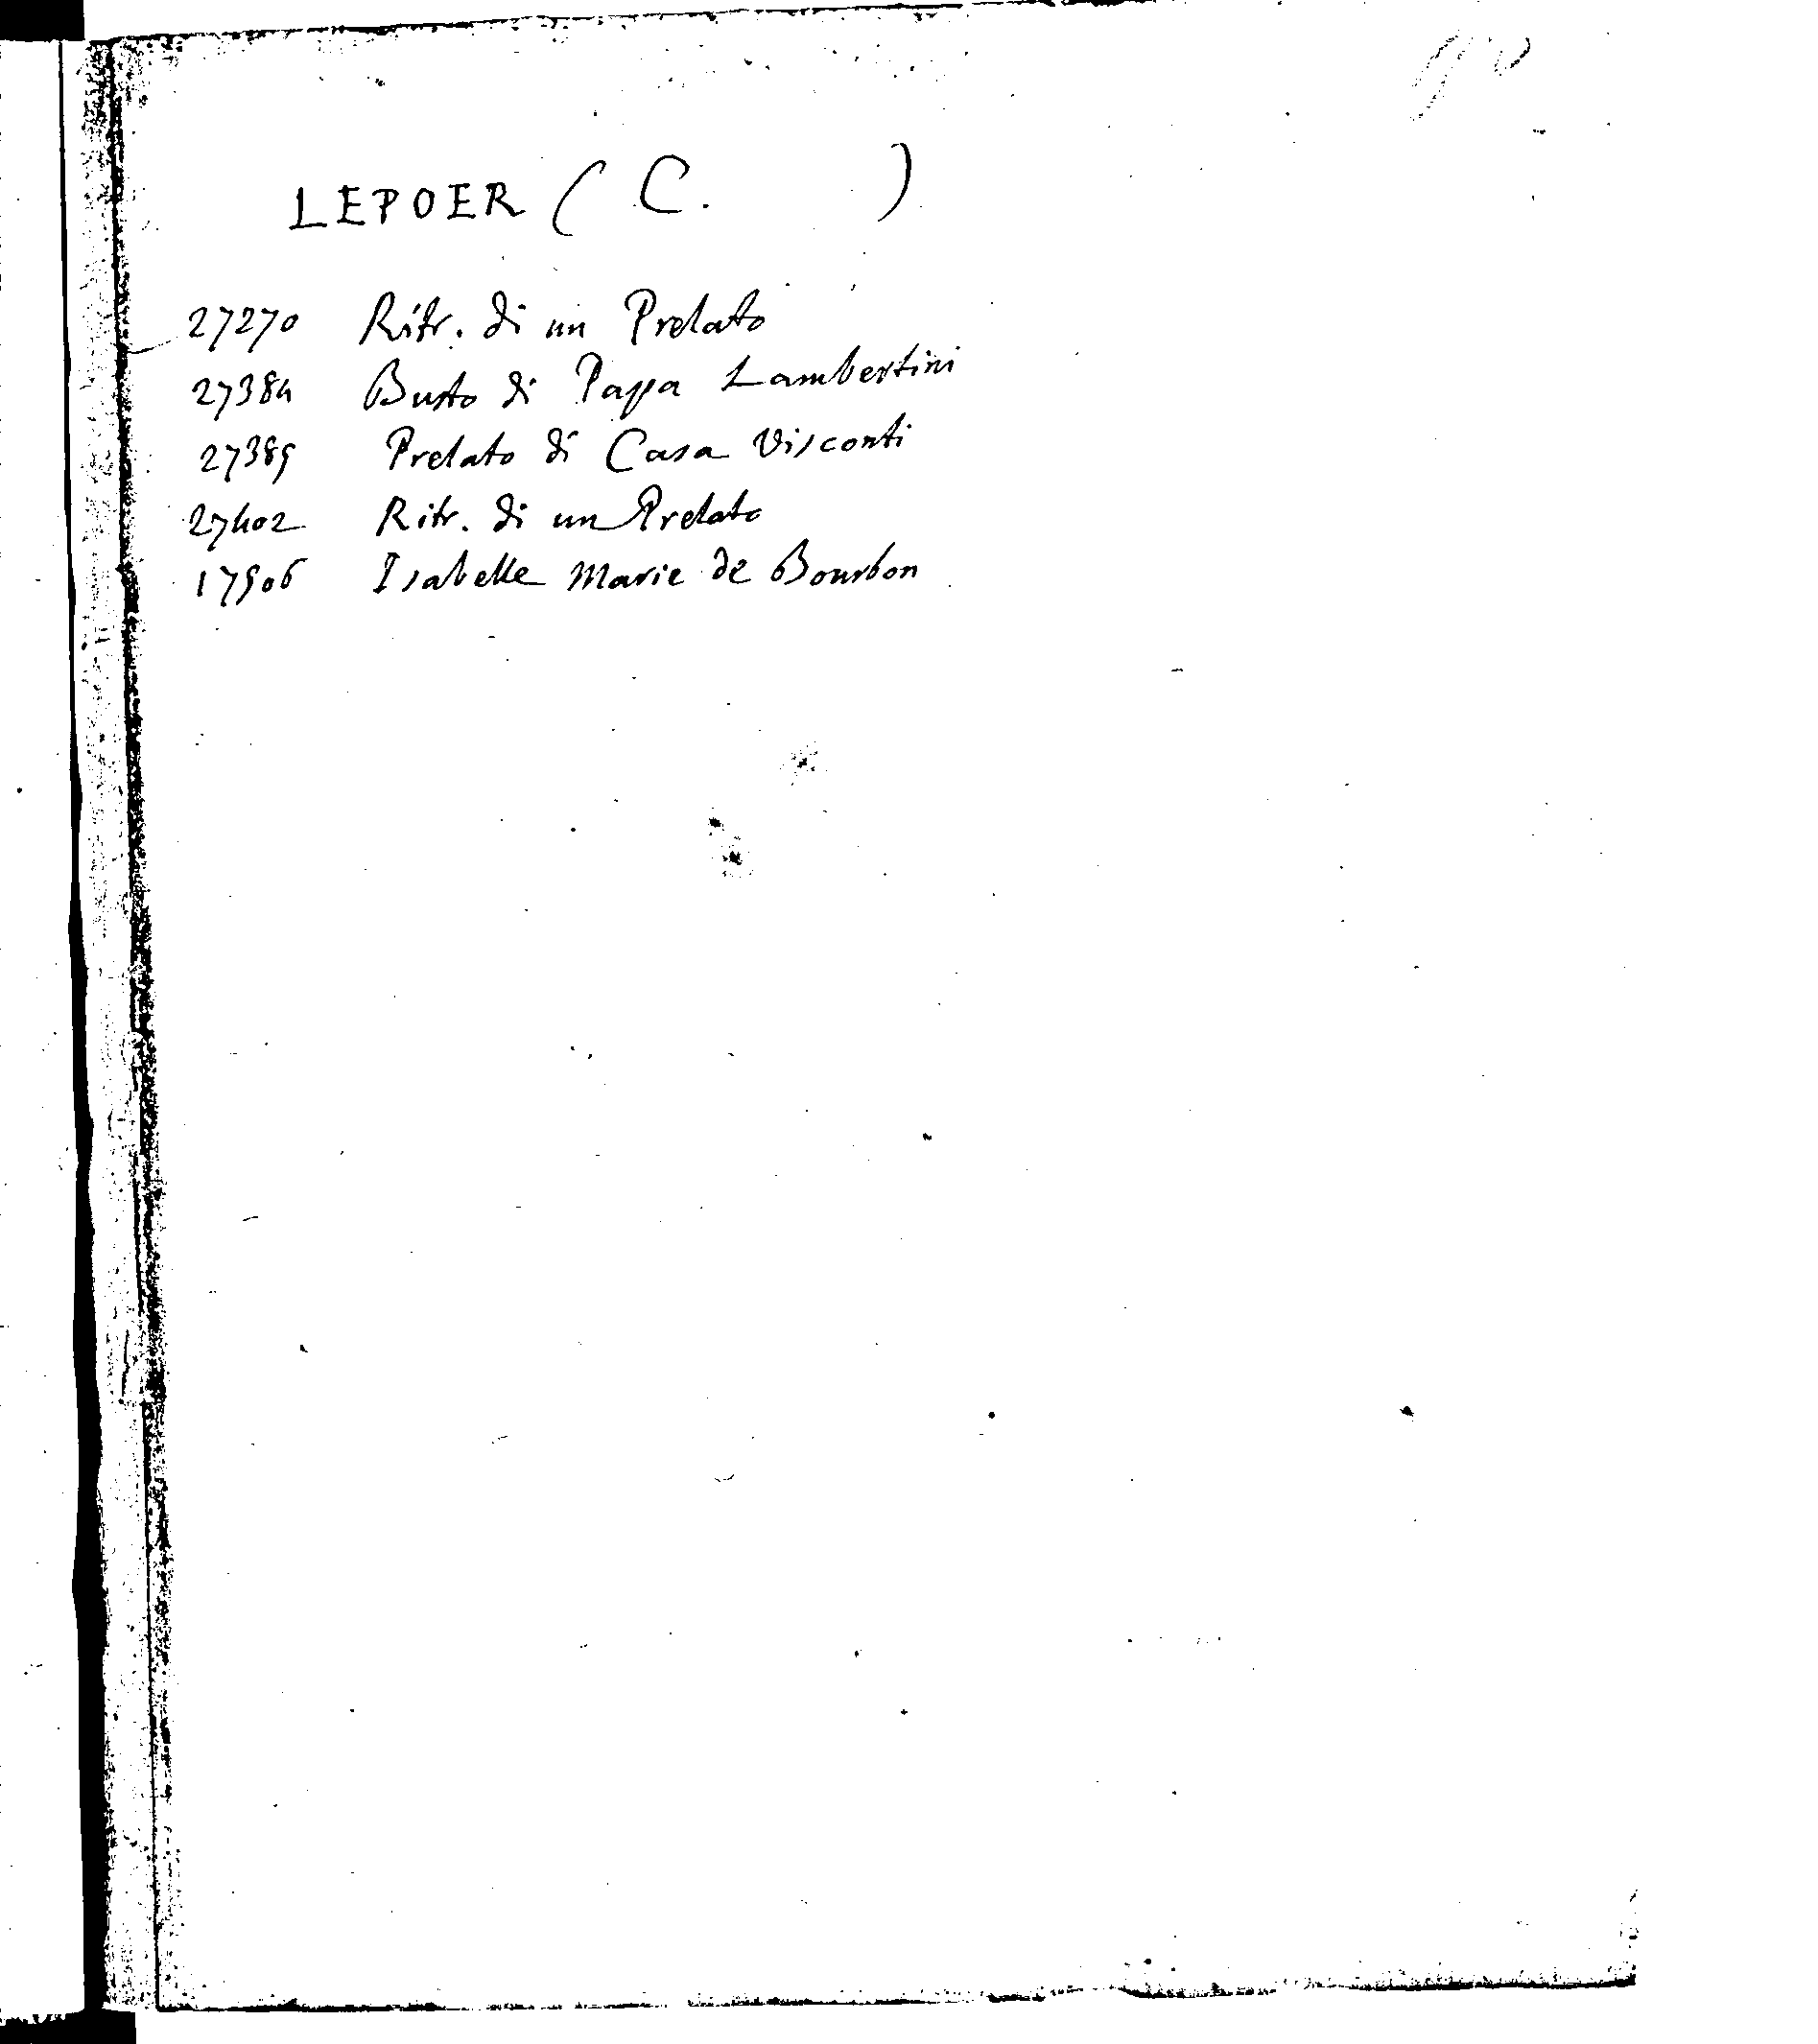 LEPOER ( C. )
27270 Ritr. di un Prelato
27384 Busto di Papa Lambertini
27389 Prelato di Casa Visconti
27402 Ritr. di un Prelato
17906 Isabelle Marie de Bourbon